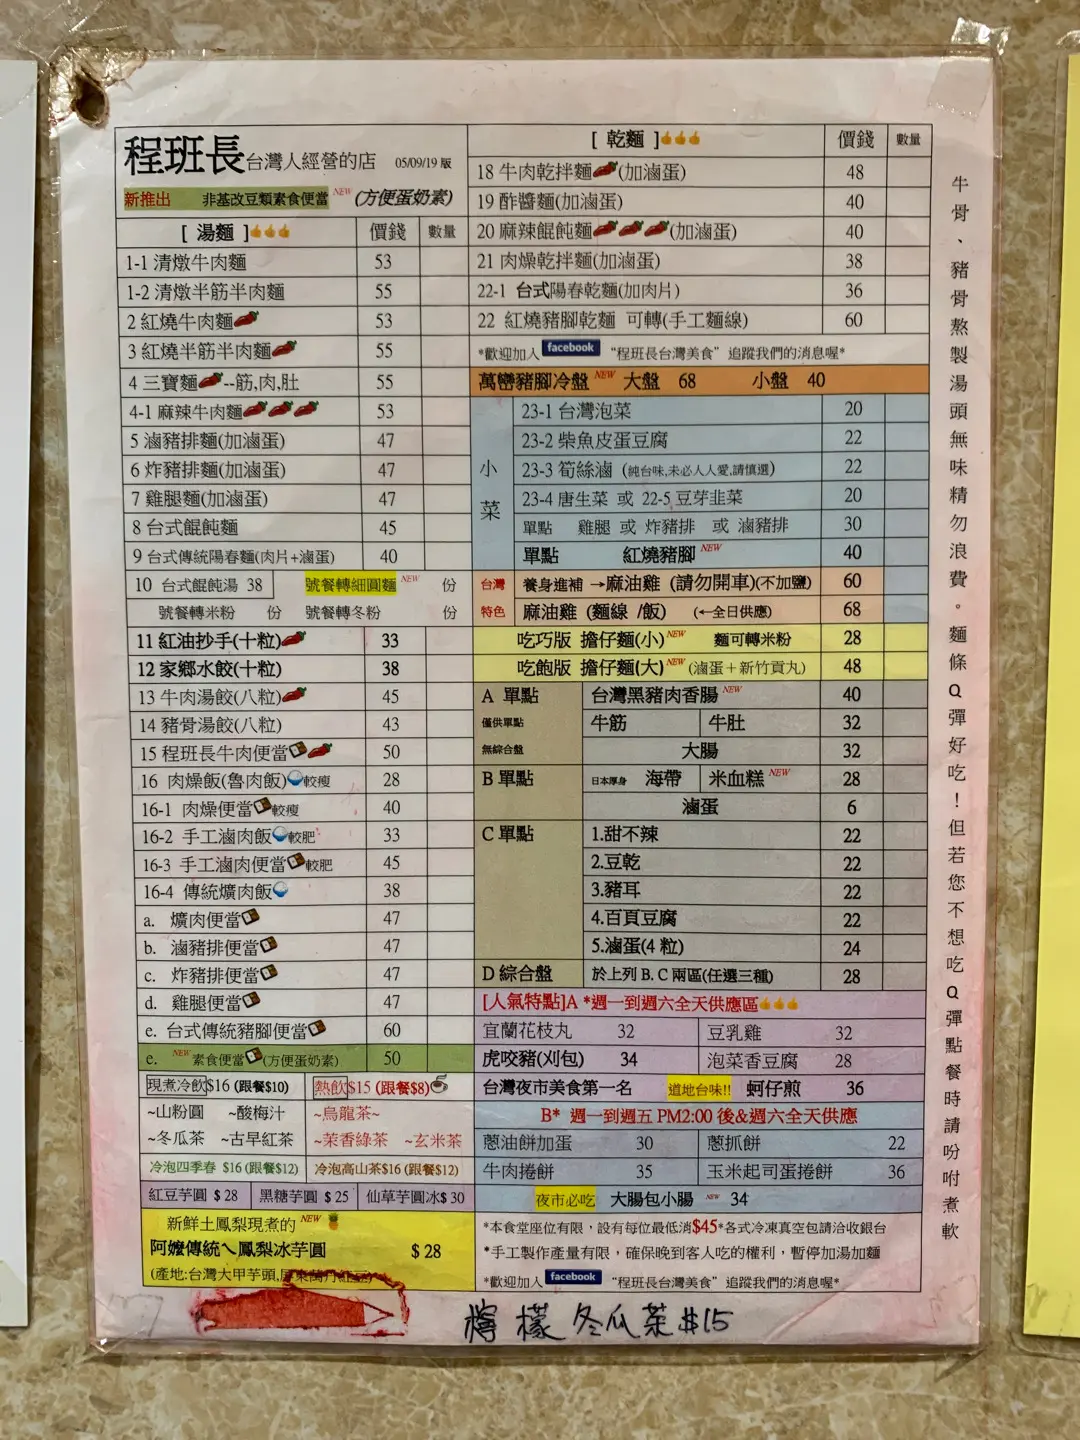 程班長台灣人經營的店 05/09/19 版
新推出 非基改豆類素食便當 NEW (方便蛋奶素)
[ 湯麵 ] 價錢 數量
1-1 清燉牛肉麵 53
1-2 清燉半筋半肉麵 55
2 紅燒牛肉麵 53
3 紅燒半筋半肉麵 55
4 三寶麵--筋,肉,肚 55
4-1 麻辣牛肉麵 53
5 滷豬排麵(加滷蛋) 47
6 炸豬排麵(加滷蛋) 47
7 雞腿麵(加滷蛋) 47
8 台式餛飩麵 45
9 台式傳統陽春麵(肉片+滷蛋) 40
10 台式餛飩湯 38 號餐轉細圓麵 NEW 份
號餐轉米粉 份 號餐轉冬粉 份
11 紅油抄手(十粒) 33
12 家鄉水餃(十粒) 38
13 牛肉湯餃(八粒) 45
14 豬骨湯餃(八粒) 43
15 程班長牛肉便當 50
16 肉燥飯(魯肉飯)較瘦 28
16-1 肉燥便當較瘦 40
16-2 手工滷肉飯較肥 33
16-3 手工滷肉便當較肥 45
16-4 傳統爌肉飯 38
a. 爌肉便當 47
b. 滷豬排便當 47
c. 炸豬排便當 47
d. 雞腿便當 47
e. 台式傳統豬腳便當 60
e. NEW 素食便當(方便蛋奶素) 50
現煮冷飲$16 (跟餐$10) 熱飲$15 (跟餐$8)
~山粉圓 ~酸梅汁 ~烏龍茶~
~冬瓜茶 ~古早紅茶 ~茉香綠茶 ~玄米茶
冷泡四季春 $16 (跟餐$12) 冷泡高山茶$16 (跟餐$12)
紅豆芋圓 $ 28 黑糖芋圓 $ 25 仙草芋圓冰$ 30
新鮮土鳳梨現煮的 NEW
阿嬤傳統ㄟ鳳梨冰芋圓 $ 28
(產地:台灣大甲芋頭,屏東萬丹紅豆)
[ 乾麵 ] 價錢 數量
18 牛肉乾拌麵(加滷蛋) 48
19 酢醬麵(加滷蛋) 40
20 麻辣餛飩麵(加滷蛋) 40
21 肉燥乾拌麵(加滷蛋) 38
22-1 台式陽春乾麵(加肉片) 36
22 紅燒豬腳乾麵 可轉(手工麵線) 60
*歡迎加入 facebook “程班長台灣美食” 追蹤我們的消息喔*
萬巒豬腳冷盤 NEW 大盤 68 小盤 40
小菜
23-1 台灣泡菜 20
23-2 柴魚皮蛋豆腐 22
23-3 筍絲滷 (純台味,未必人人愛,請慎選) 22
23-4 唐生菜 或 22-5 豆芽韭菜 20
單點 雞腿 或 炸豬排 或 滷豬排 30
單點 紅燒豬腳 NEW 40
台灣 養身進補 →麻油雞 (請勿開車)(不加鹽) 60
特色 麻油雞 (麵線 /飯) (←全日供應) 68
吃巧版 擔仔麵(小) NEW 麵可轉米粉 28
吃飽版 擔仔麵(大) NEW (滷蛋＋新竹貢丸) 48
A 單點 台灣黑豬肉香腸 NEW 40
僅供單點 牛筋 牛肚 32
無綜合盤 大腸 32
B 單點 日本厚身 海帶 米血糕 NEW 28
滷蛋 6
C 單點 1.甜不辣 22
2.豆乾 22
3.豬耳 22
4.百頁豆腐 22
5.滷蛋(4 粒) 24
D 綜合盤 於上列 B. C 兩區(任選三種) 28
[人氣特點]A *週一到週六全天供應區
宜蘭花枝丸 32 豆乳雞 32
虎咬豬(刈包) 34 泡菜香豆腐 28
台灣夜市美食第一名 道地台味!! 蚵仔煎 36
B* 週一到週五 PM2:00 後&週六全天供應
蔥油餅加蛋 30 蔥抓餅 22
牛肉捲餅 35 玉米起司蛋捲餅 36
夜市必吃 大腸包小腸 NEW 34
*本食堂座位有限，設有每位最低消$45*各式冷凍真空包請洽收銀台
*手工製作產量有限，確保晚到客人吃的權利，暫停加湯加麵
*歡迎加入 facebook “程班長台灣美食” 追蹤我們的消息喔*
牛骨、豬骨熬製湯頭無味精勿浪費。麵條Q彈好吃！但若您不想吃Q彈點餐時請吩咐煮軟
檸檬冬瓜茶$15